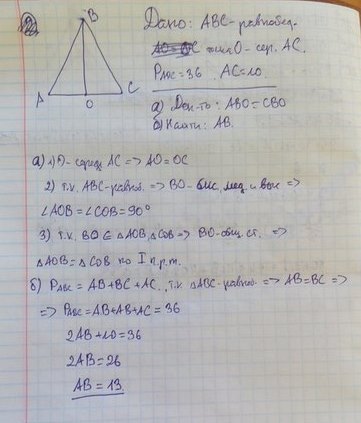 B
A
O
C
Дано: ABC - равнобед.
т. O - сер. AC.
P ABC = 36 AC = 10.
а) Док-ть: ABO = CBO
б) Найти: AB.
а) 1) O - серед. AC => AO = OC
2) т.к. ABC - равноб. => BO - бис, мед и выс =>
∠AOB = ∠COB = 90°
3) т.к. BO ∈ △AOB, △COB => BO - общ. ст. =>
△AOB = △COB по I п.р.т.
б) P ABC = AB + BC + AC. т.к △ABC - равноб. => AB = BC =>
=> P ABC = AB + AB + AC = 36
2AB + 10 = 36
2AB = 26
AB = 13.